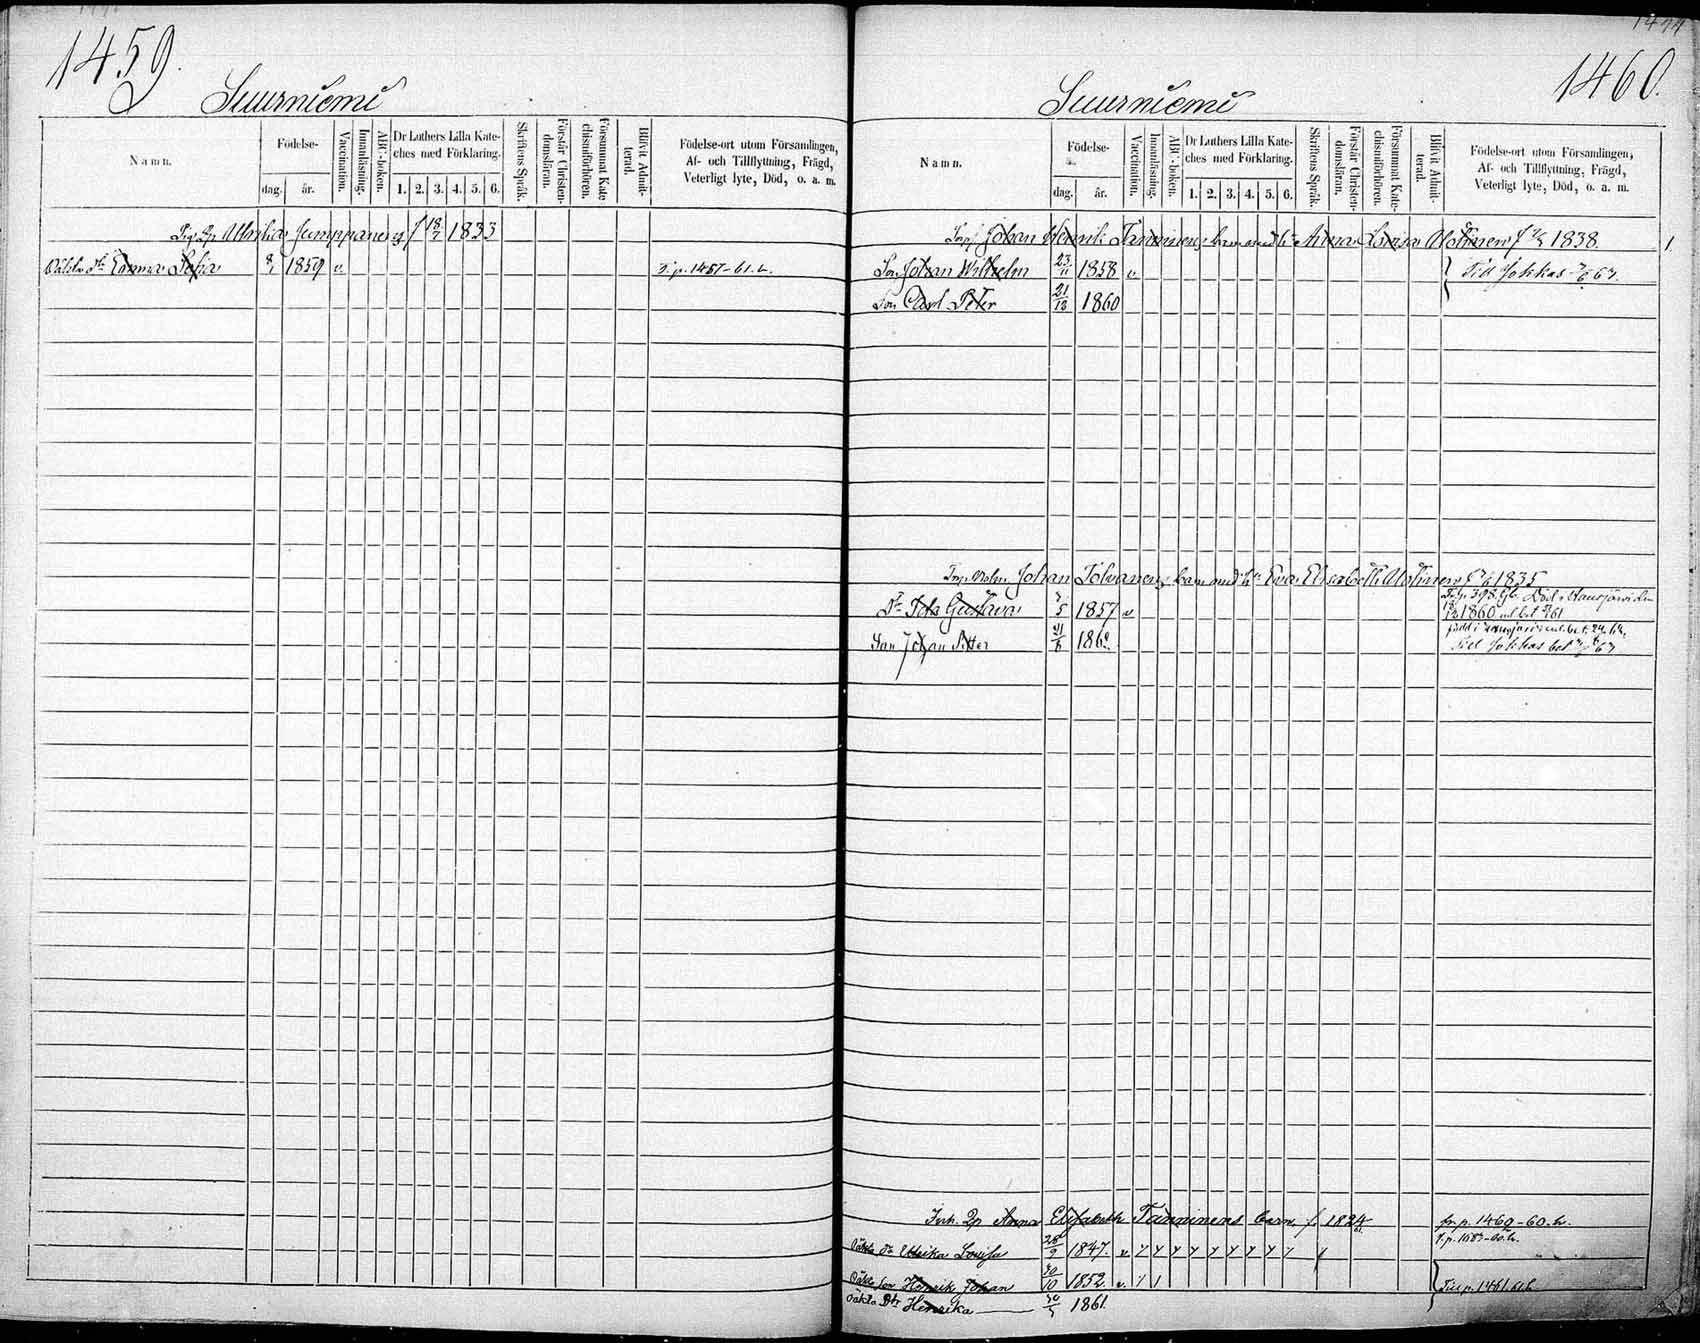 1459.
Suurniemi
Namn. Födelse- dag. år. Vaccination. Innanläsning. ABC-boken. Dr Luthers Lilla Kate-ches med Förklaring. 1. 2. 3. 4. 5. 6. Skriftens Språk. Förstår Christen-domsläran. Försummat Kate chismiförhören. Blifvit Admit-terad. Födelse-ort utom Församlingen, Af- och Tillflyttning, Frägd, Veterligt lyte, Död, o. a. m.
Ulrika Jumppanens f 18/7 1833
Oäkta Dtr Emma Sofia 8/1 1859 v. T. p. 1457-61. h.
1474
1460.
Suurniemi
Namn. Födelse- dag. år. Vaccination. Innanläsning. ABC-boken. Dr Luthers Lilla Kate-ches med Förklaring. 1. 2. 3. 4. 5. 6. Skriftens Språk. Förstår Christen-domsläran. Försummat Kate-chismiförhören. Blifvit Admit-terad. Födelse-ort utom Församlingen, Af- och Tillflyttning, Frägd, Veterligt lyte, Död, o. a. m.
Johan Henrik Tanninens barn med h: Anna Lovisa Motinen f 1838. 1
Son Johan Wilhelm 23/11 1858 v. Till Jokkas 67.
Son Carl Peter 21/12 1860
Johan Tolvanens barn med h: Eva Elisabeth Motinen f 1835
Dr Ida Gustava 5 1857 v 398. Död i Kausjärvi
1860 enl. bet. 61
född i enl. bet. 24
Son Johan Petter 21/6 186 Till Jokkas bet 67
Inh. Qp Anna Elisabeth Tanninens barn f. 1824 fr. p. 1460-60. h.
Oäkta Dr Ulrika Lovisa 28/9 1847. v.
Oäkta son Henrik Johan 30/10 1852. v. Till p. 1461. 61. h
Oäkta Dtr Henrika 1861.